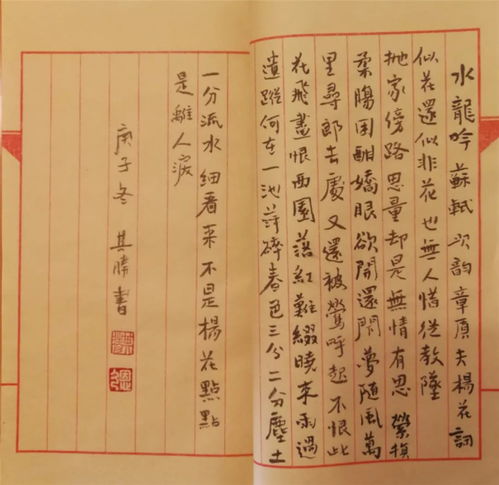 水龍吟 蘇軾 次韵章質夫楊花詞
似花還似非花也無人惜從教墜
抛家傍路思量却是無情有思 縈損
柔腸困酣嬌眼欲開還閉夢隨風萬
里尋郎去處又還被鶯呼起不恨此
花飛盡恨西園落紅難綴曉來雨過
遺蹤何在一池萍碎春色三分二分塵土
一分流水細看來不是楊花點點
是離人淚
庚子冬 其勝書